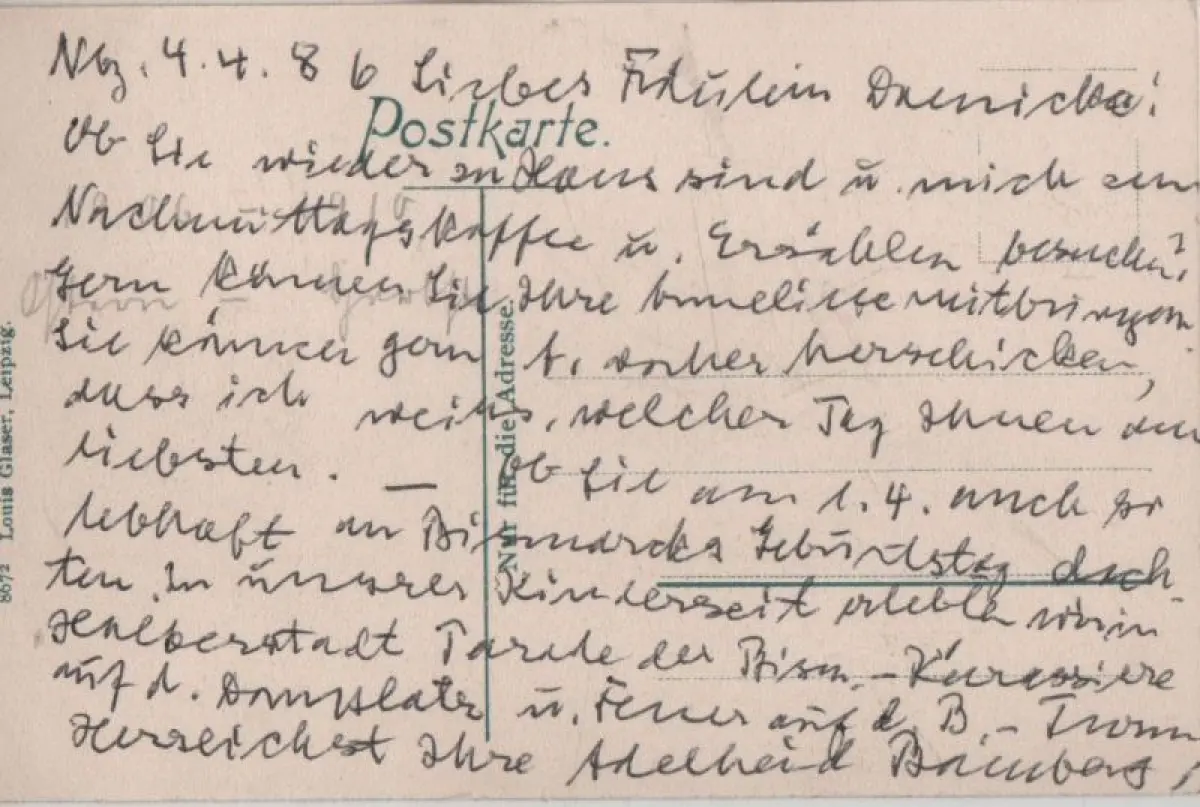 Nbz. 4.4.86 Liebes Fräulein Daenicke!
Postkarte.
Ob Sie wieder zu Haus sind u. mich zum
Nachmittagskaffee u. Erzählen besuchen?
Gern können Sie Ihre mitbringen.
Sie können gern vorher herschicken,
dass ich weiss, welcher Tag Ihnen am
liebsten. — Ob Sie am 1.4. auch so
lebhaft an Bismarcks Geburtstag dach-
ten. In unserer Kinderzeit erlebten wir in
Halberstadt Parade der Bism.-Kürassiere
auf d. Domplatz u. Feuer auf d. B.-Turm
Herzlichst Ihre Adelheid Bamberg
Nur für die Adresse.
8672 Louis Glaser, Leipzig.